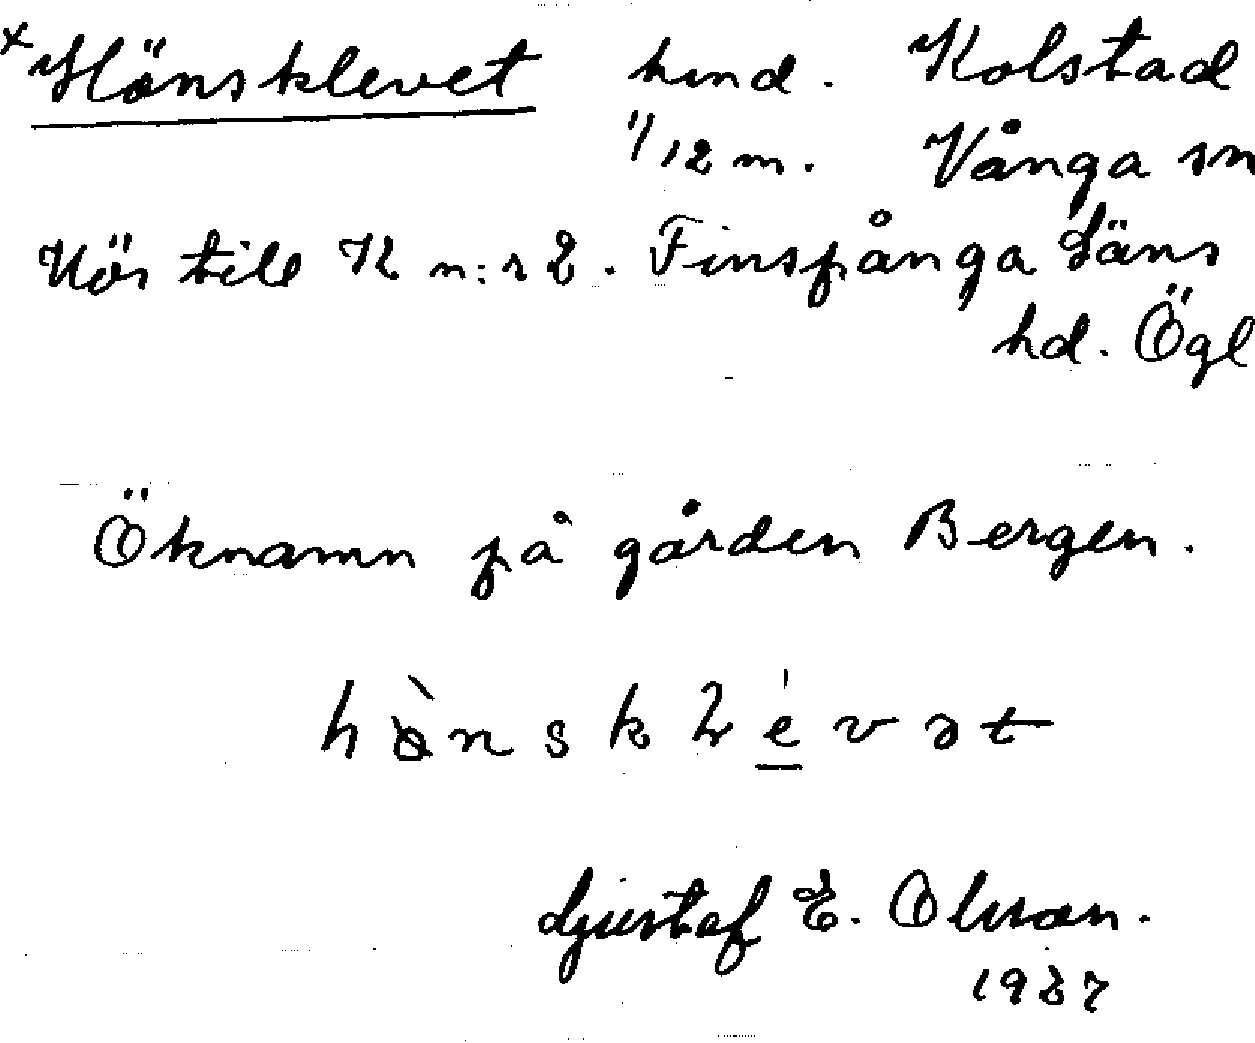 × Hönsklevet hmd. Kolstad
1/12 m. Vånga sn
Hör till K n:r 2. Finspånga läns
hd. Ögl
Öknamn på gården Bergen.
hö̀nsklévət
Gustaf E. Olsson.
1937